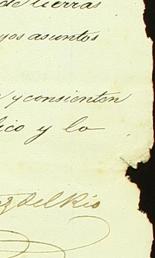 de tierras
yos asuntos
y consienten
ico y lo
del Rio